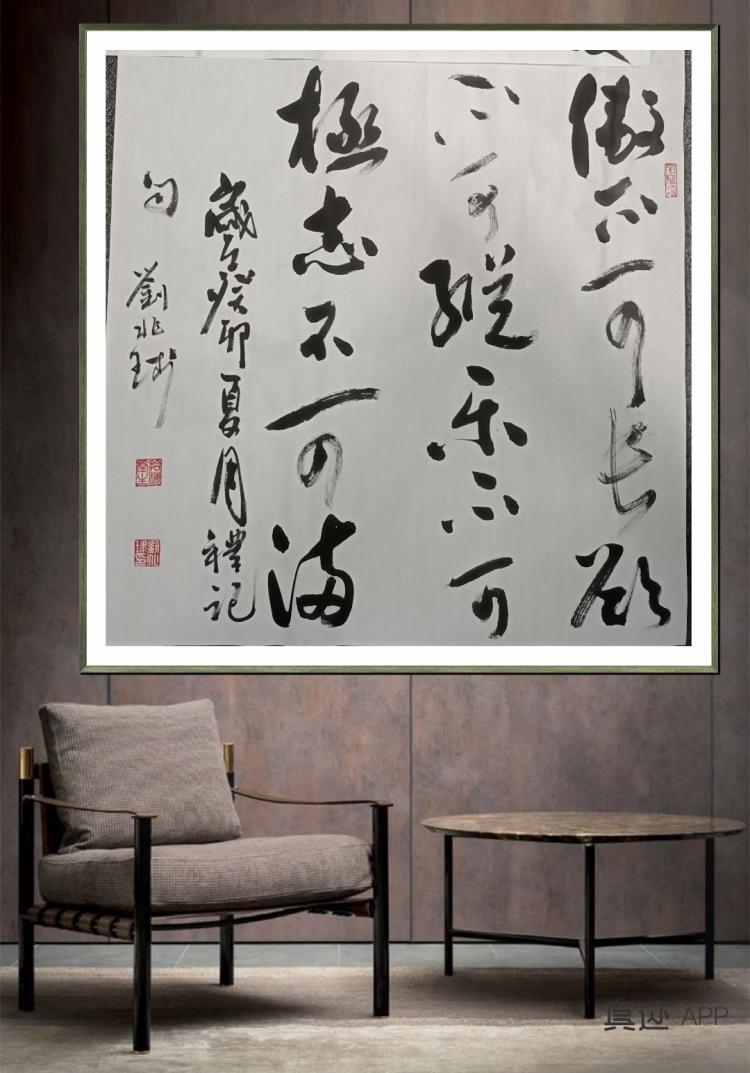 傲不可长欲
不可縱乐不可
極志不可满
歲在癸卯夏月禮記
句 劉兆球
真迹 APP